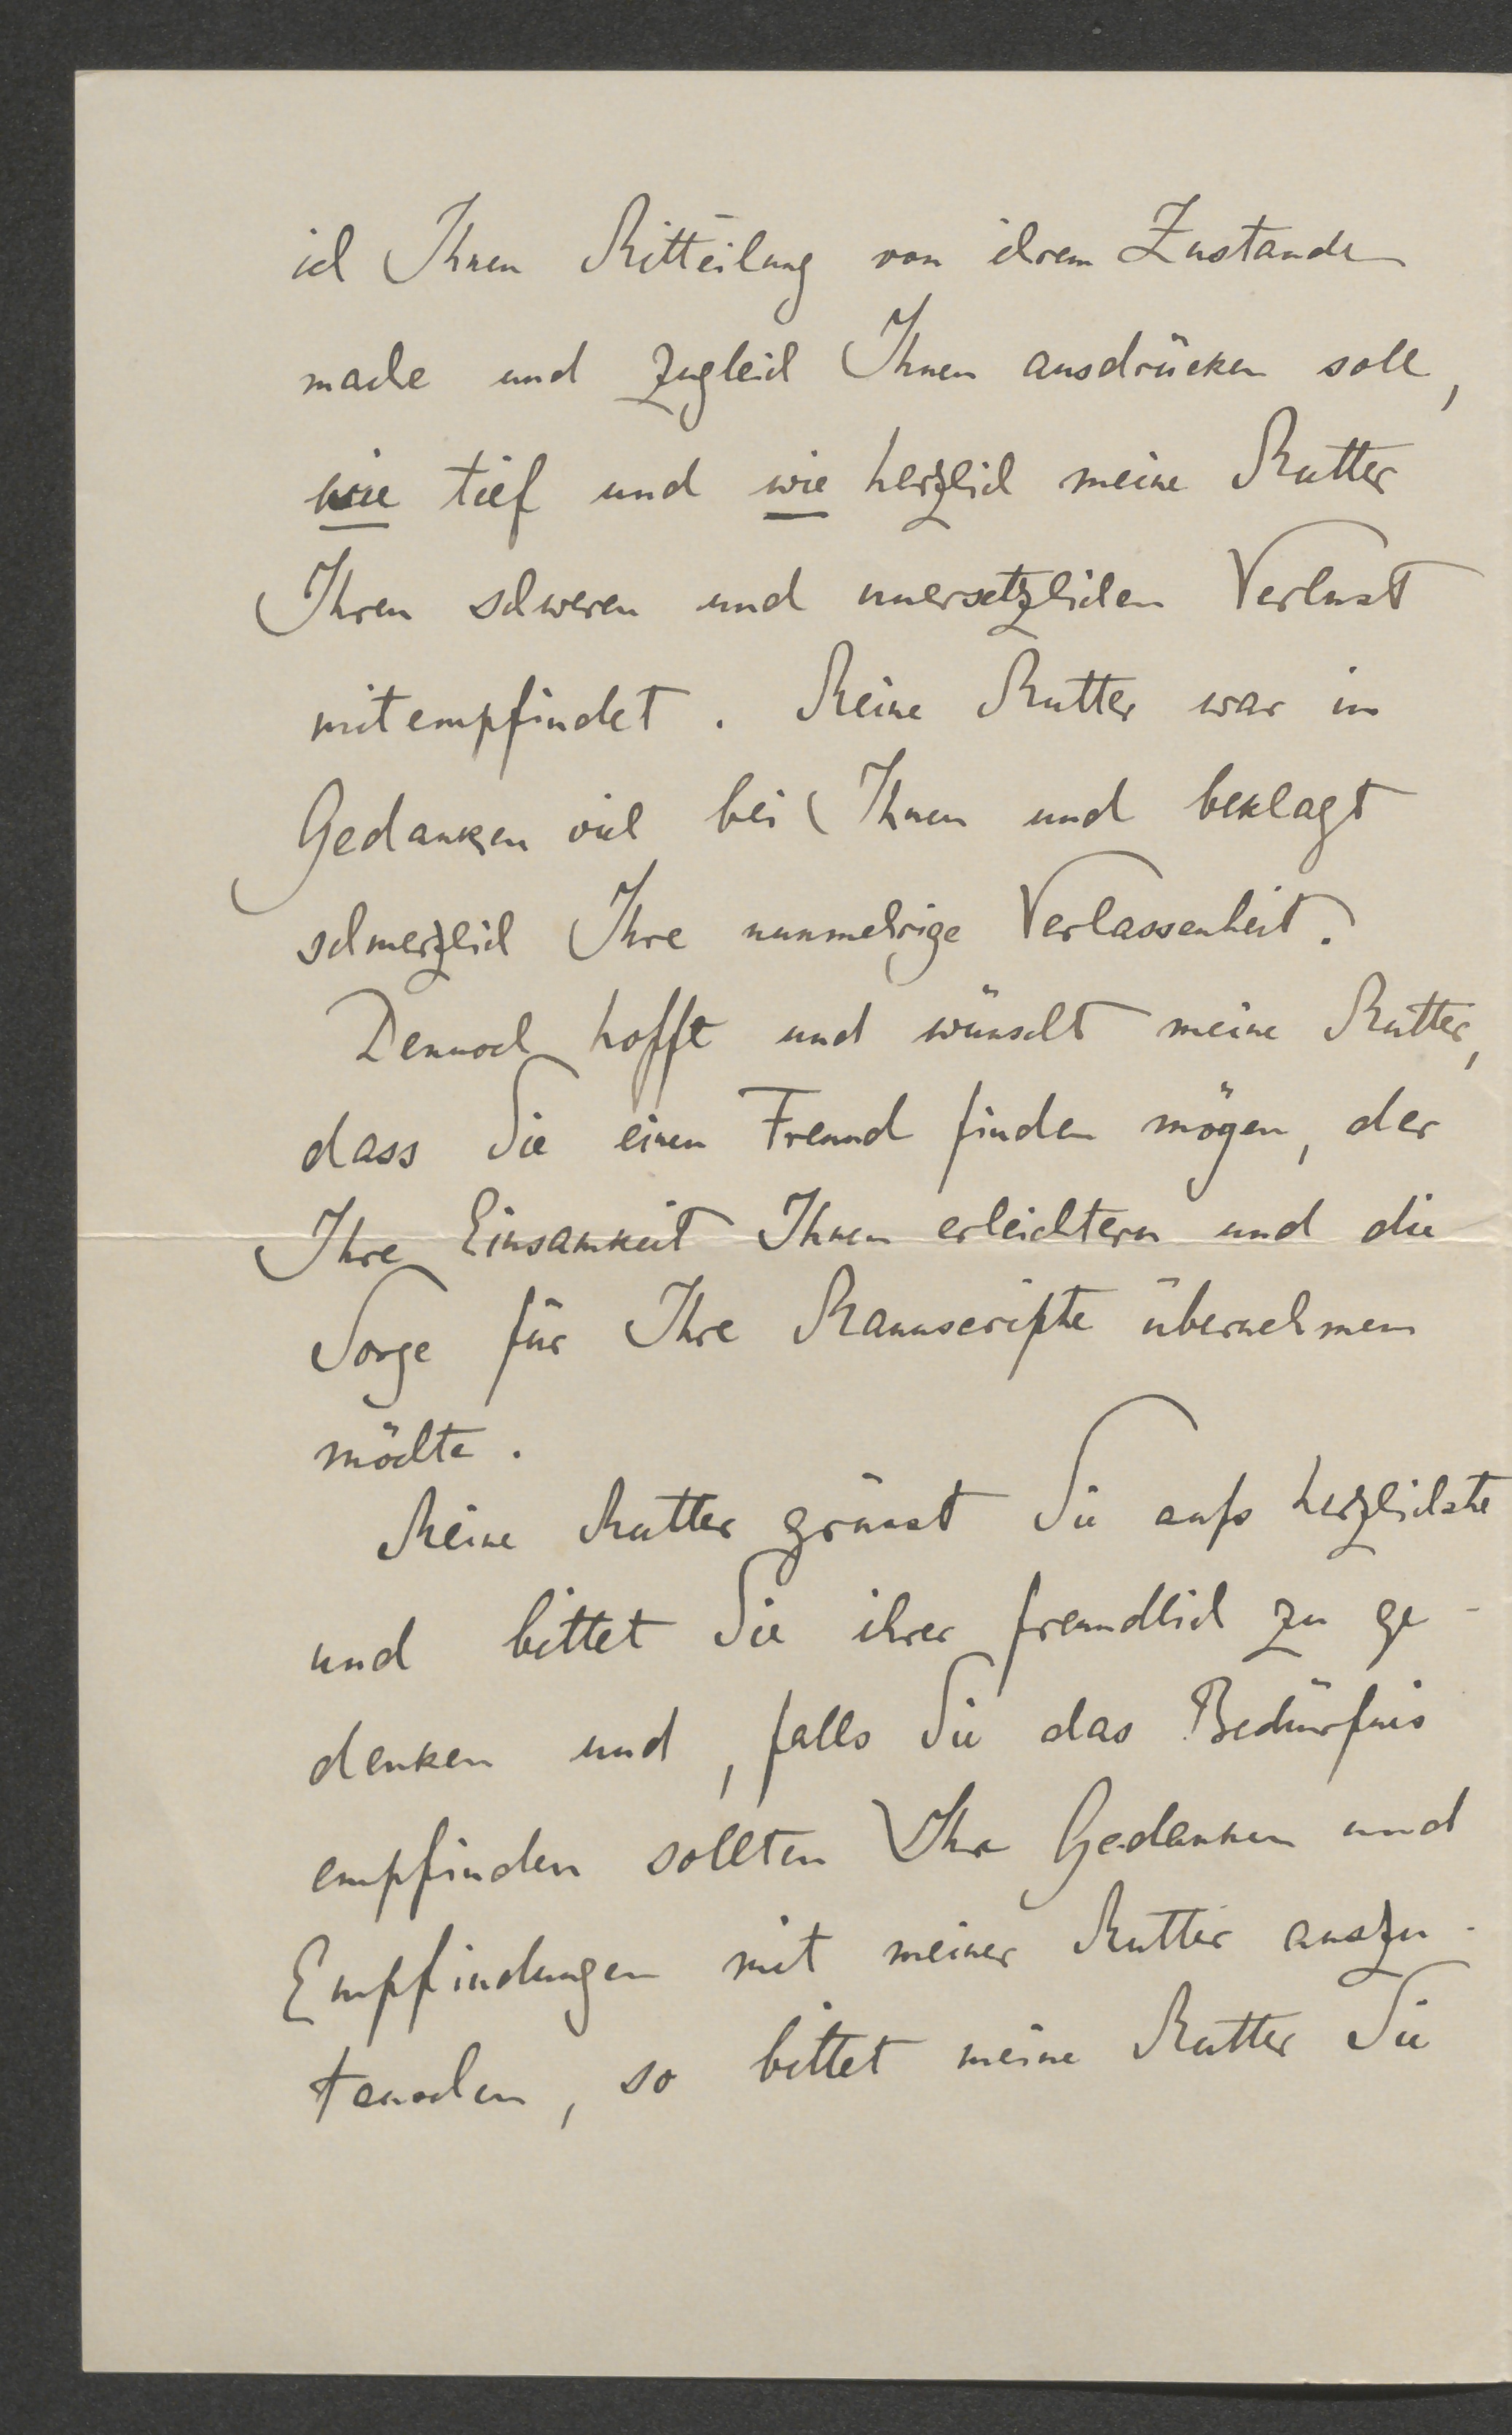 ich Ihnen Mitteilung von ihrem Zustande
mache und zugleich Ihnen ausdrücken soll,
wie tief und wie herzlich meine Mutter
Ihren schweren und unersetzlichen Verlust
mitempfindet. Meine Mutter war in
Gedanken viel bei Ihnen und beklagt
schmerzlich Ihre nunmehrige Verlassenheit.
Dennoch hofft und wünscht meine Mutter,
dass Sie einen Freund finden mögen, der
Ihre Einsamkeit Ihnen erleichtern und die
Sorge für Ihre Manuscripte übernehmen
möchte.
Meine Mutter grüsst Sie aufs herzlichste
und bittet Sie ihrer freundlich zu ge-
denken und, falls Sie das Bedürfnis
empfinden sollten Ihre Gedanken und
Empfindungen mit meiner Mutter auszu-
tauschen, so bittet meine Mutter Sie